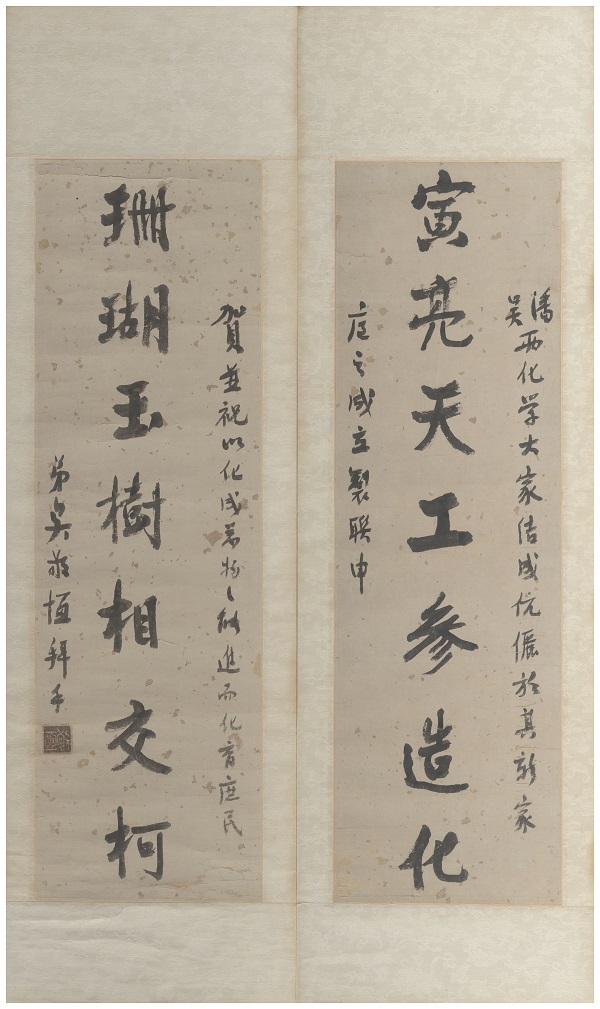 潘吴两化学大家结成伉俪於其新家
寅亮天工参造化
庭之成立製联申
賀並祝以化成萬物之功進而化育庶民
珊瑚玉樹相交柯
弟吳敬恆拜手